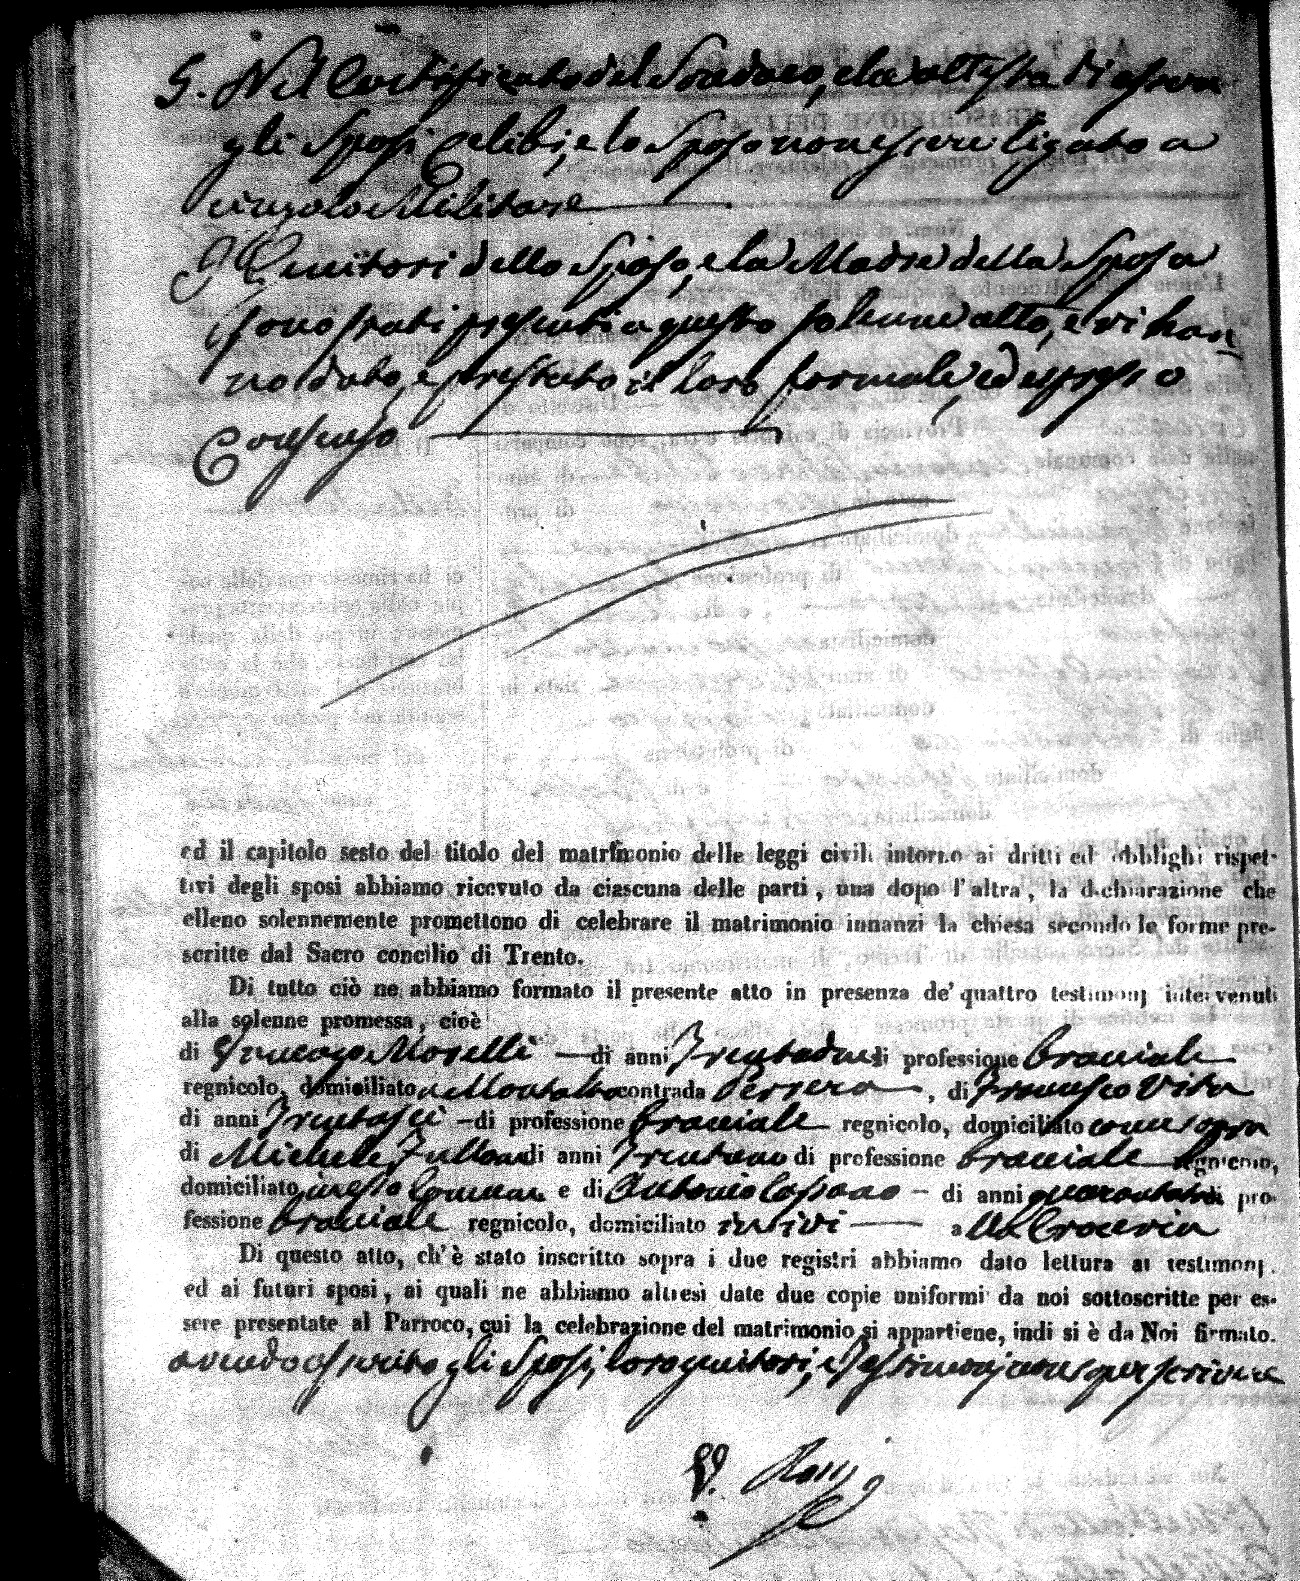 5. Nel Certificato del Sindaco, che attesta di essere
gli Sposi Celibi, e lo Sposo non essere ligato a
vincolo Militare
I Genitori dello Sposo, e la Madre della Sposa
sono stati presenti a questo solenne atto, e vi han
no dato, e prestato il loro formale, ed espresso
Consenso
ed il capitolo sesto del titolo del matrimonio delle leggi civili intorno ai dritti ed obblighi rispet-
tivi degli sposi abbiamo ricevuto da ciascuna delle parti, una dopo l'altra, la dichiarazione che
elleno solennemente promettono di celebrare il matrimonio innanzi la chiesa secondo le forme pre-
scritte dal Sacro concilio di Trento.
Di tutto ciò ne abbiamo formato il presente atto in presenza de' quattro testimonj intervenuti
alla solenne promessa, cioè
di Morelli di anni Trentadue di professione bracciale
regnicolo, domiciliato contrada, di Francesco Vita
di anni Trentasei di professione bracciale regnicolo, domiciliato come sopra
di Michele di anni Trentuno di professione bracciale regnicolo,
domiciliato in essa Comune e di Antonio di anni di pro-
fessione bracciale regnicolo, domiciliato ivi alla
Di questo atto, ch'è stato inscritto sopra i due registri abbiamo dato lettura ai testimonj,
ed ai futuri sposi, ai quali ne abbiamo altresì date due copie uniformi da noi sottoscritte per es-
sere presentate al Parroco, cui la celebrazione del matrimonio si appartiene, indi si è da Noi firmato.
avendo asserito gli Sposi, loro genitori, e Testimonj non saper scrivere